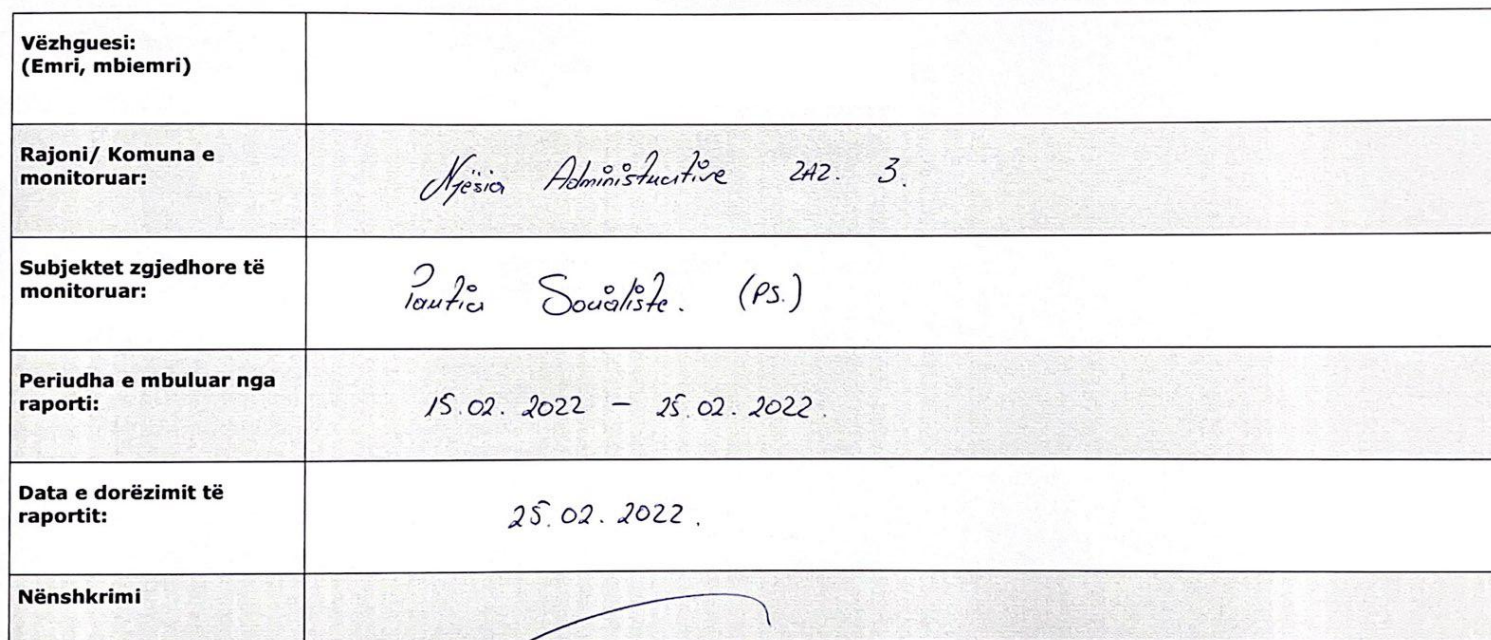 Vëzhguesi:
(Emri, mbiemri)
Rajoni/ Komuna e
monitoruar:
Njësia Administrative ZAZ. 3.
Subjektet zgjedhore të
monitoruar:
Partia Socialiste. (PS.)
Periudha e mbuluar nga
raporti:
15.02.2022 – 25.02.2022.
Data e dorëzimit të
raportit:
25.02.2022.
Nënshkrimi